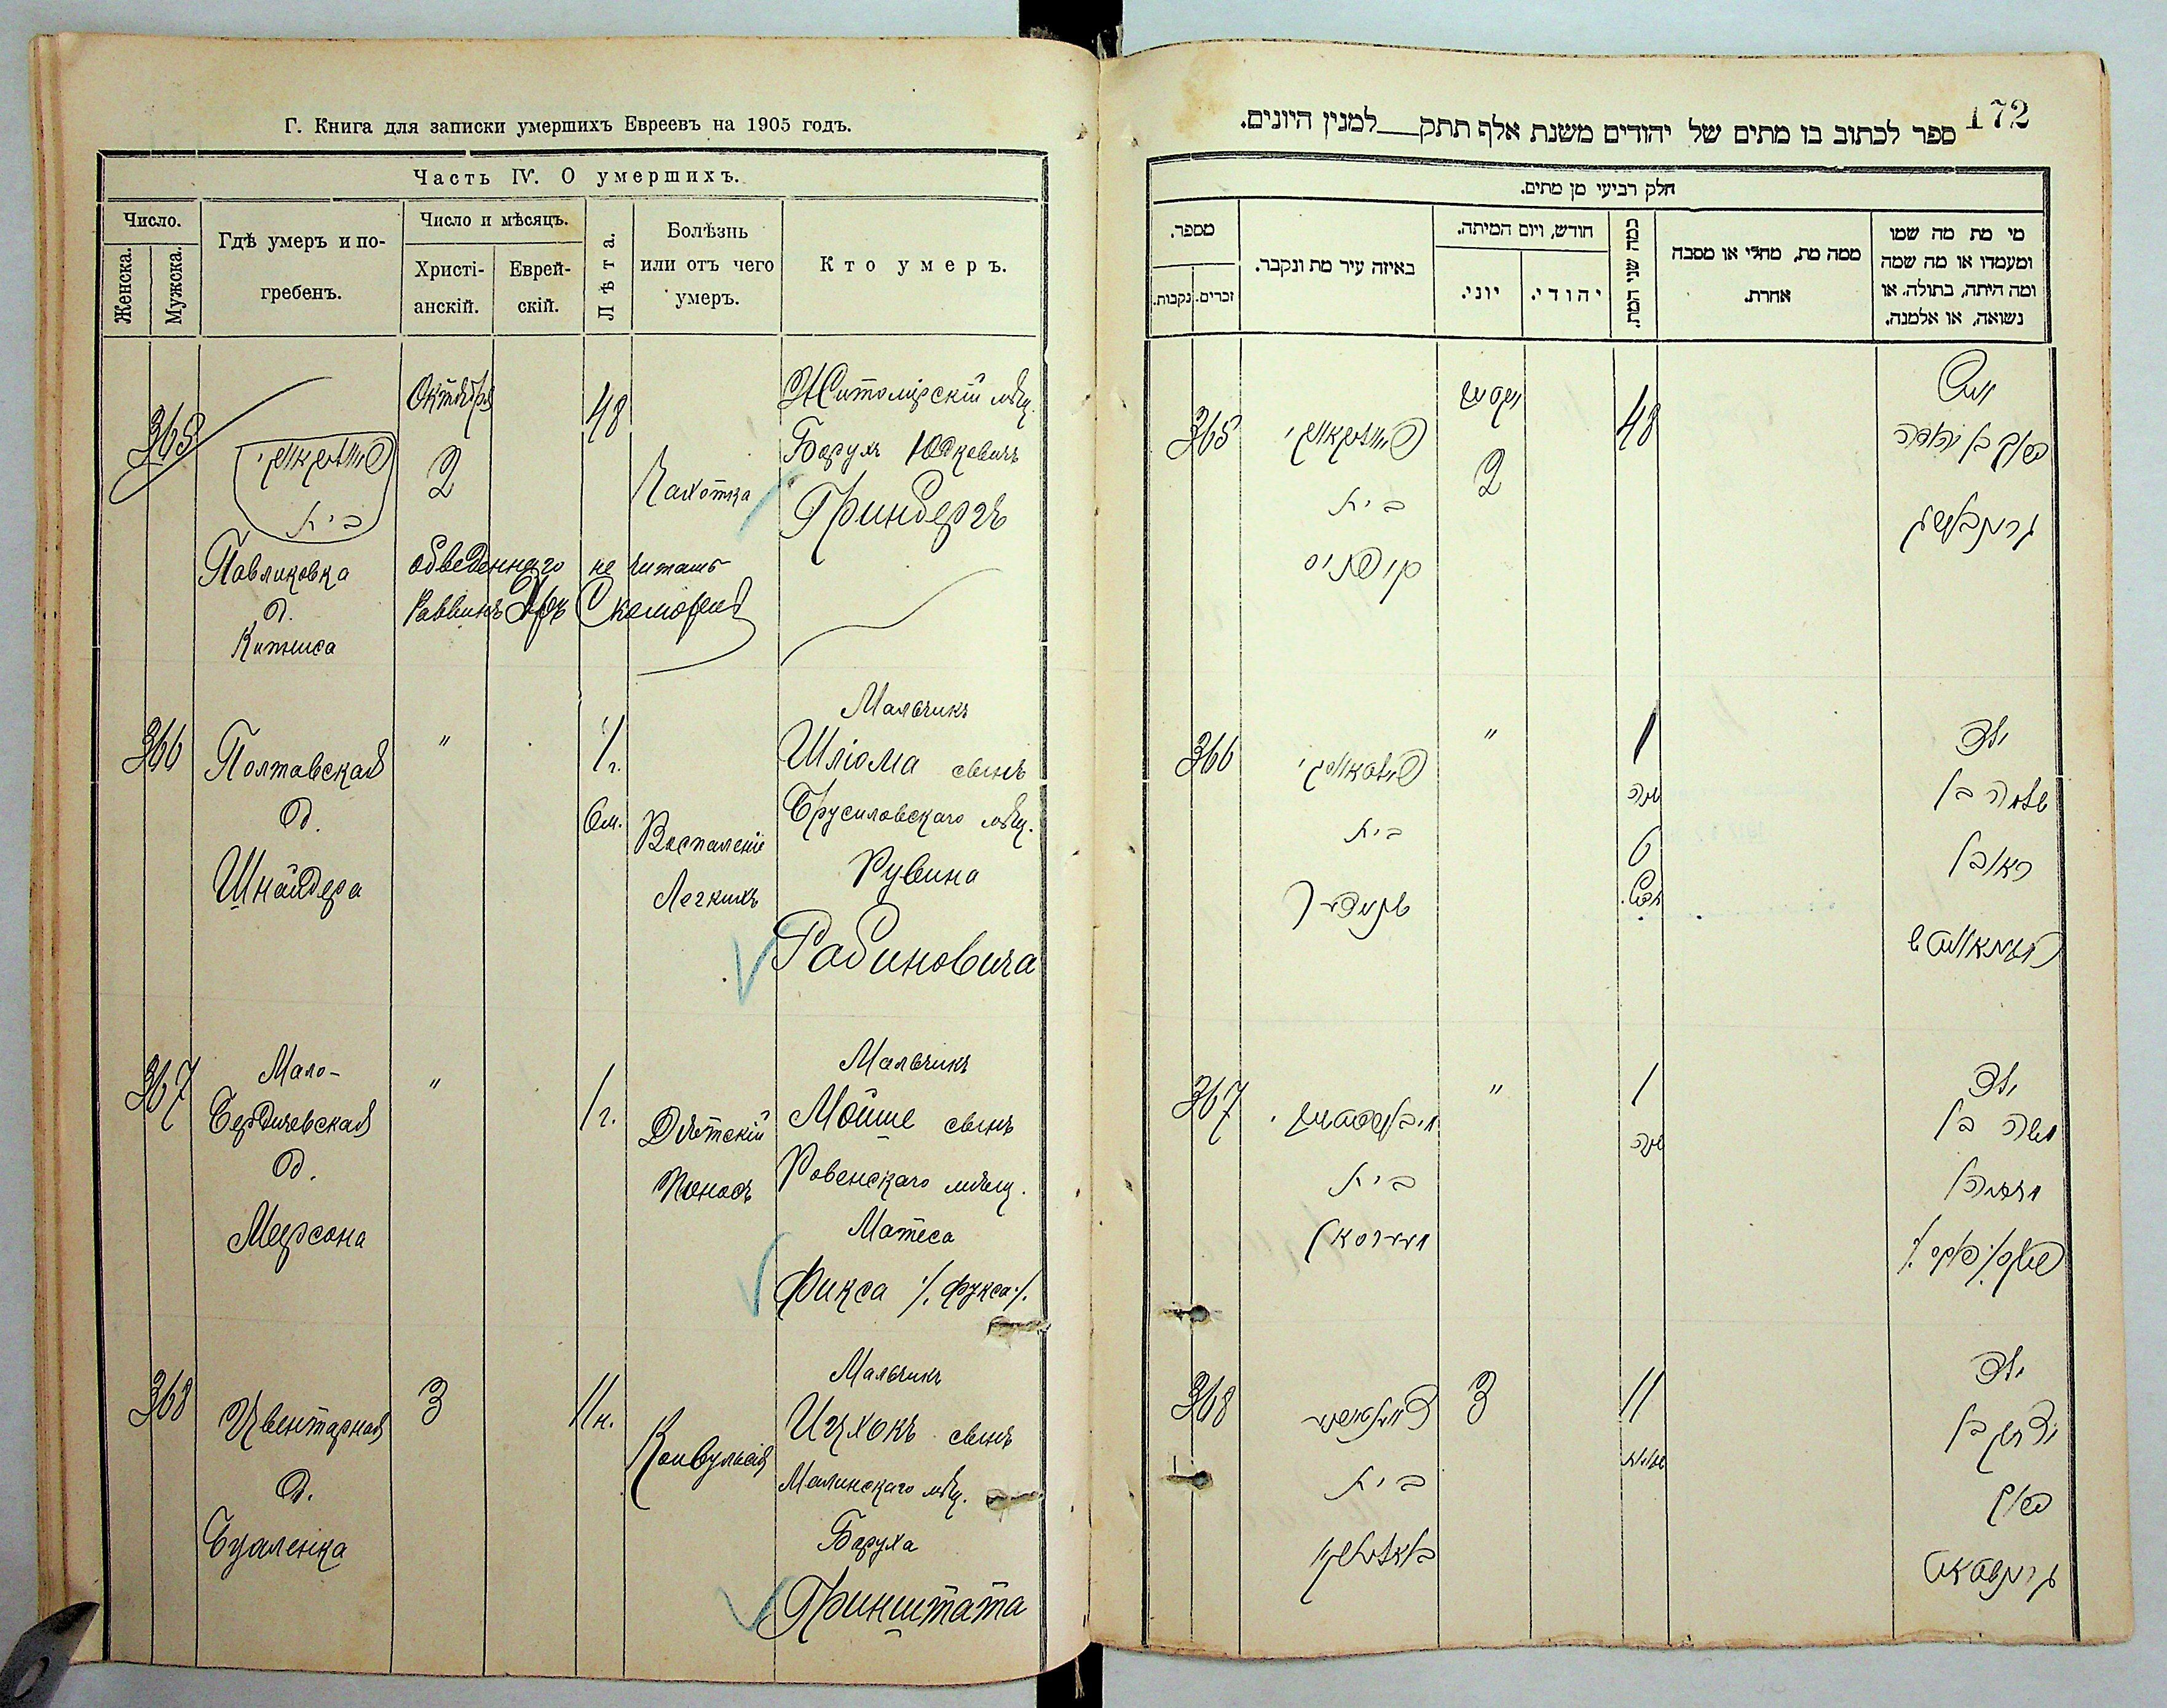 Г. Книга для записки умершихъ Евреевъ на 1905 годъ.
Часть IV. О умершихъ.
Число.
Женска.
Мужска.
Гдѣ умеръ и по-
гребенъ.
Число и мѣсяцъ.
Христі-
анскій.
Еврей-
скій.
Лѣта.
Болѣзнь
или отъ чего
умеръ.
Кто умеръ.
365
פאוולוקאווקי
בית
Павликовка
д.
Китниса
Октября
2
48
Чахотка
Житомірскій мѣщ.
Борухъ Юдковичъ
Гринбергъ
обведеннаго не читать
Раввинъ
366
Полтавская
д.
Шнайдера
"
1 г.
6 м.
Воспаленіе
Легкихъ
Мальчикъ
Шліома сынъ
Брусиловскаго мѣщ.
Рувина
Рабиновича
367
Мало-
Бердичевская
д.
Меерсона
"
1 г.
Дѣтскій
Поносъ
Мальчикъ
Мойше сынъ
Ровенскаго мѣщ.
Матеса
Фикса /. Фукса ./.
368
д.
3
11 н.
Конвульсія
Мальчикъ
Ицхокъ сынъ
Малинскаго мѣщ.
Боруха
Гринштата
172
ספר לכתוב בו מתים של יהודים משנת אלף תתק למנין היונים.
חלק רביעי מן מתים.
מספר.
זכרים.
נקבות.
באיזה עיר מת ונקבר.
חודש, ויום המיתה.
יוני.
יהודי.
כמה שני המת.
ממה מת, מחלי או מסבה
אחרת.
מי מת מה שמו
ומעמדו או מה שמה
ומה היתה, בתולה, או
נשואה, או אלמנה.
365
בית
קיטניס
2
48
איש
ברוך בן יהודה
גרינבערג
366
פאלטאווסקי
בית
שניידער
"
1
שנה
6
חדש.
ילד
שלמה בן
ראובן
ראבינאוויטש
367
בית
מעערסאן
"
1
שנה
ילד
משה בן
מתתיהו
פיקס /. פוקס ./
368
בית
3
11
שבועות
ילד
יצחק בן
ברוך
גרינשטאט